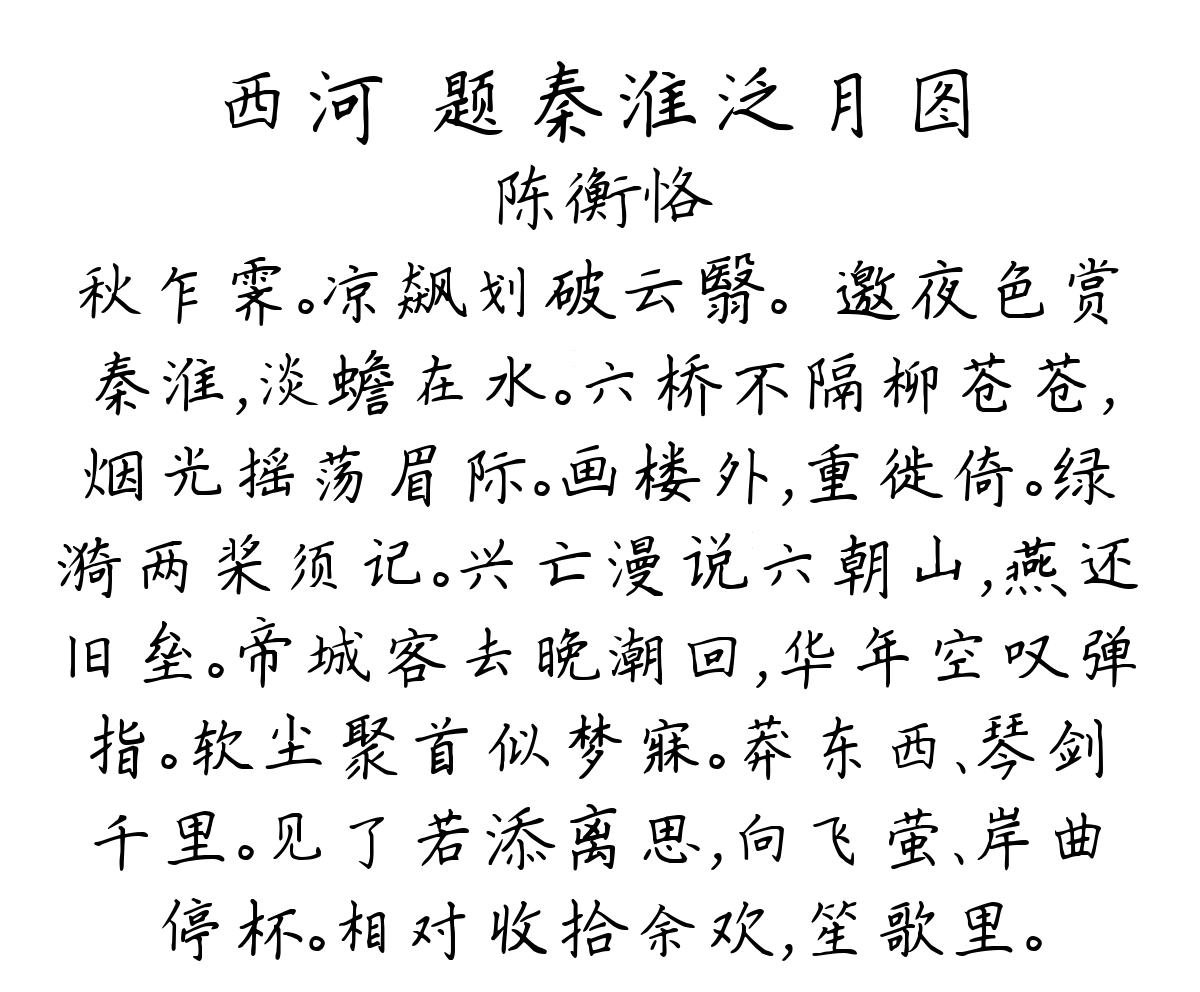 西河 题秦淮泛月图
陈衡恪
秋乍霁。凉飙划破云翳。邀夜色赏
秦淮,淡蟾在水。六桥不隔柳苍苍,
烟光摇荡眉际。画楼外,重徙倚。绿
漪两桨须记。兴亡漫说六朝山,燕还
旧垒。帝城客去晚潮回,华年空叹弹
指。软尘聚首似梦寐。莽东西、琴剑
千里。见了若添离思,向飞萤、岸曲
停杯。相对收拾余欢,笙歌里。